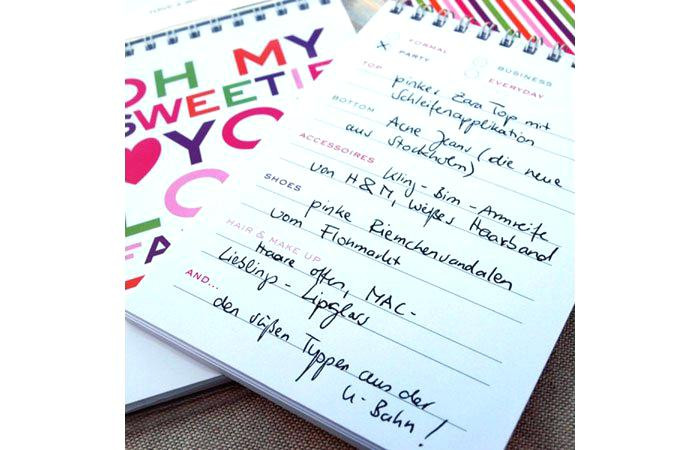 OH MY
SWEETIE
YO
LO
FA
FORMAL
BUSINESS
x PARTY
EVERYDAY
TOP
pinkes Zara Top mit
Schleifenapplikation
BOTTOM
Acne Jeans (die neue
aus Stockholm)
ACCESSOIRES
Kling-Bim-Armreife
von H&M, weißes Haarband
SHOES
pinke Riemchensandalen
vom Flohmarkt
HAIR & MAKE UP
Haare offen, MAC-
Lieblings-Lipglass
AND...
den süßen Typpen aus der
U-Bahn!